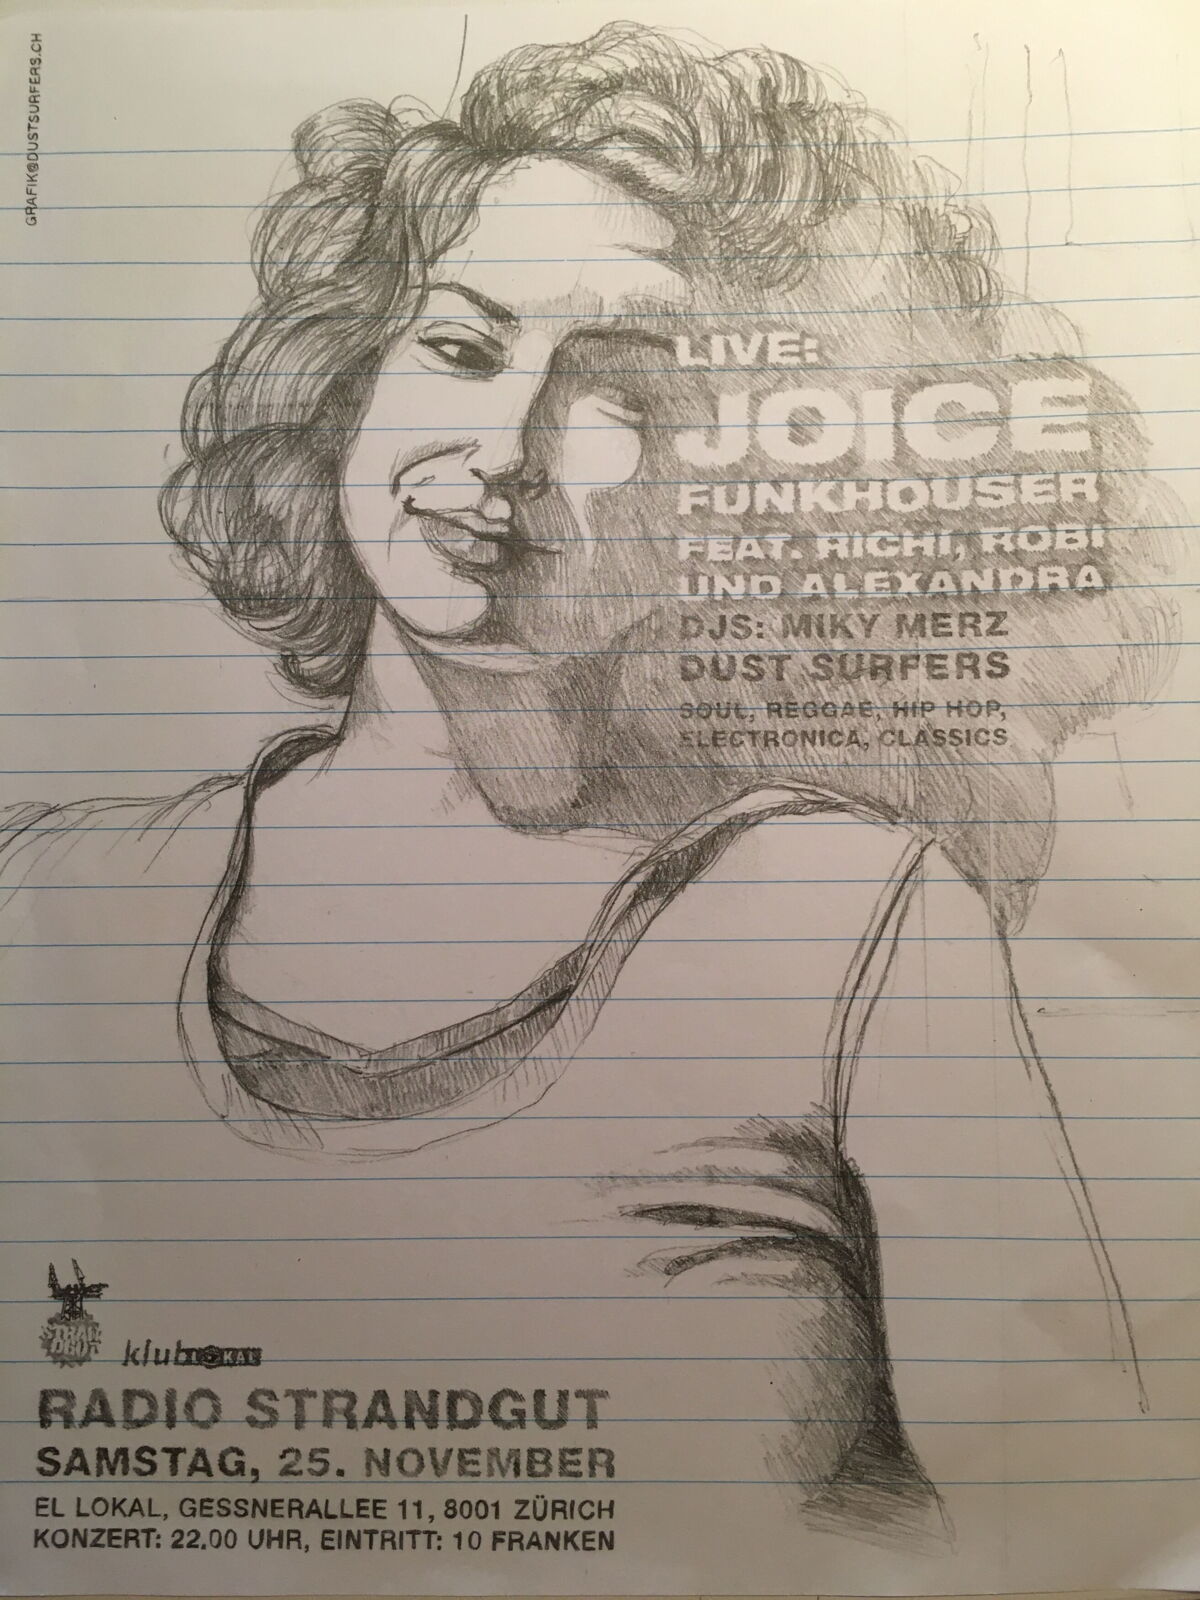 GRAFIK@DUSTSURFERS.CH
LIVE:
JOICE
FUNKHOUSER
FEAT. RICHI, ROBI
UND ALEXANDRA
DJS: MIKY MERZ
DUST SURFERS
SOUL, REGGAE, HIP HOP,
ELECTRONICA, CLASSICS
STRANDGUT
klub LOKAL
RADIO STRANDGUT
SAMSTAG, 25. NOVEMBER
EL LOKAL, GESSNERALLEE 11, 8001 ZÜRICH
KONZERT: 22.00 UHR, EINTRITT: 10 FRANKEN